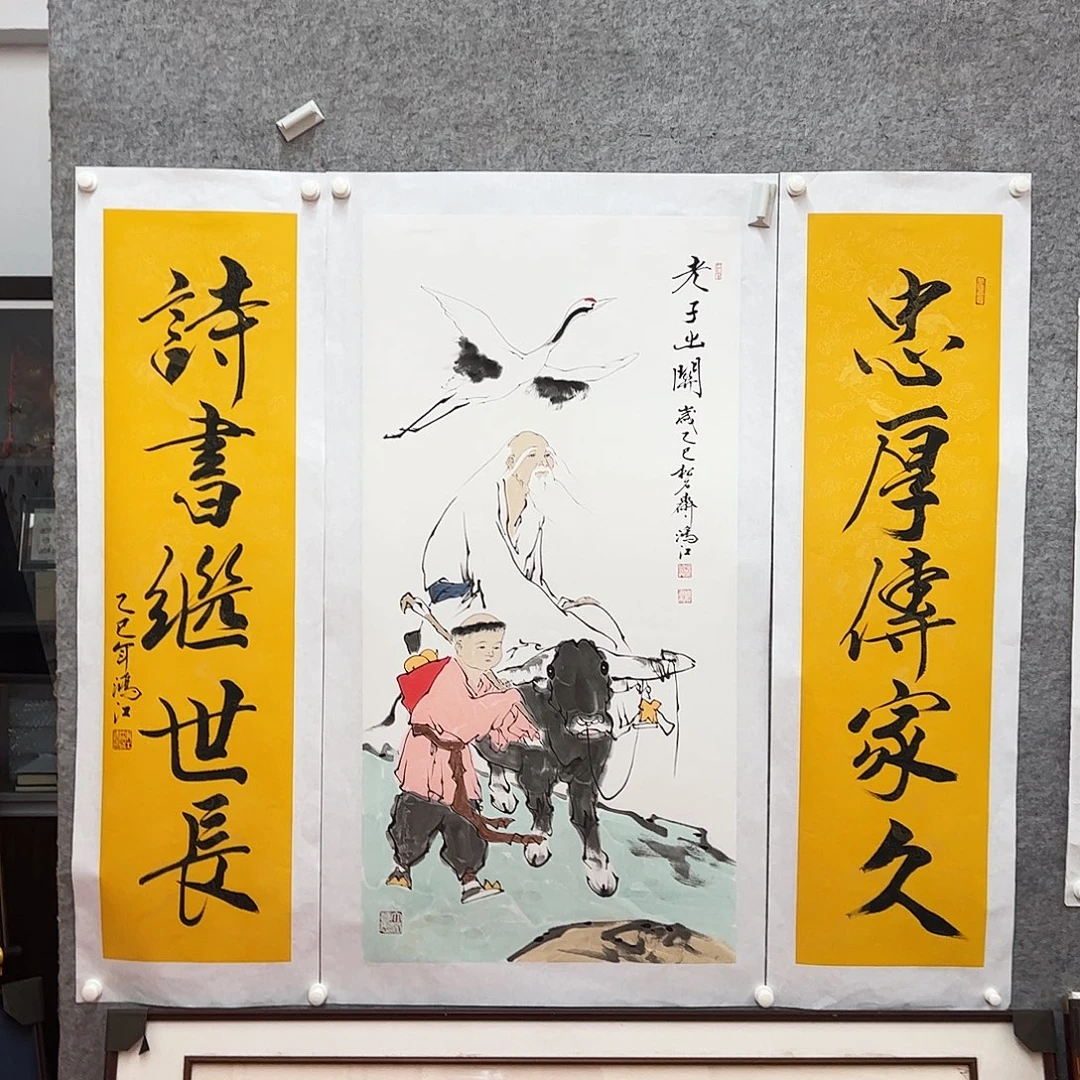 忠厚傳家久
老子出關
歲乙巳松石齋鴻江
詩書繼世長
乙巳年鴻江